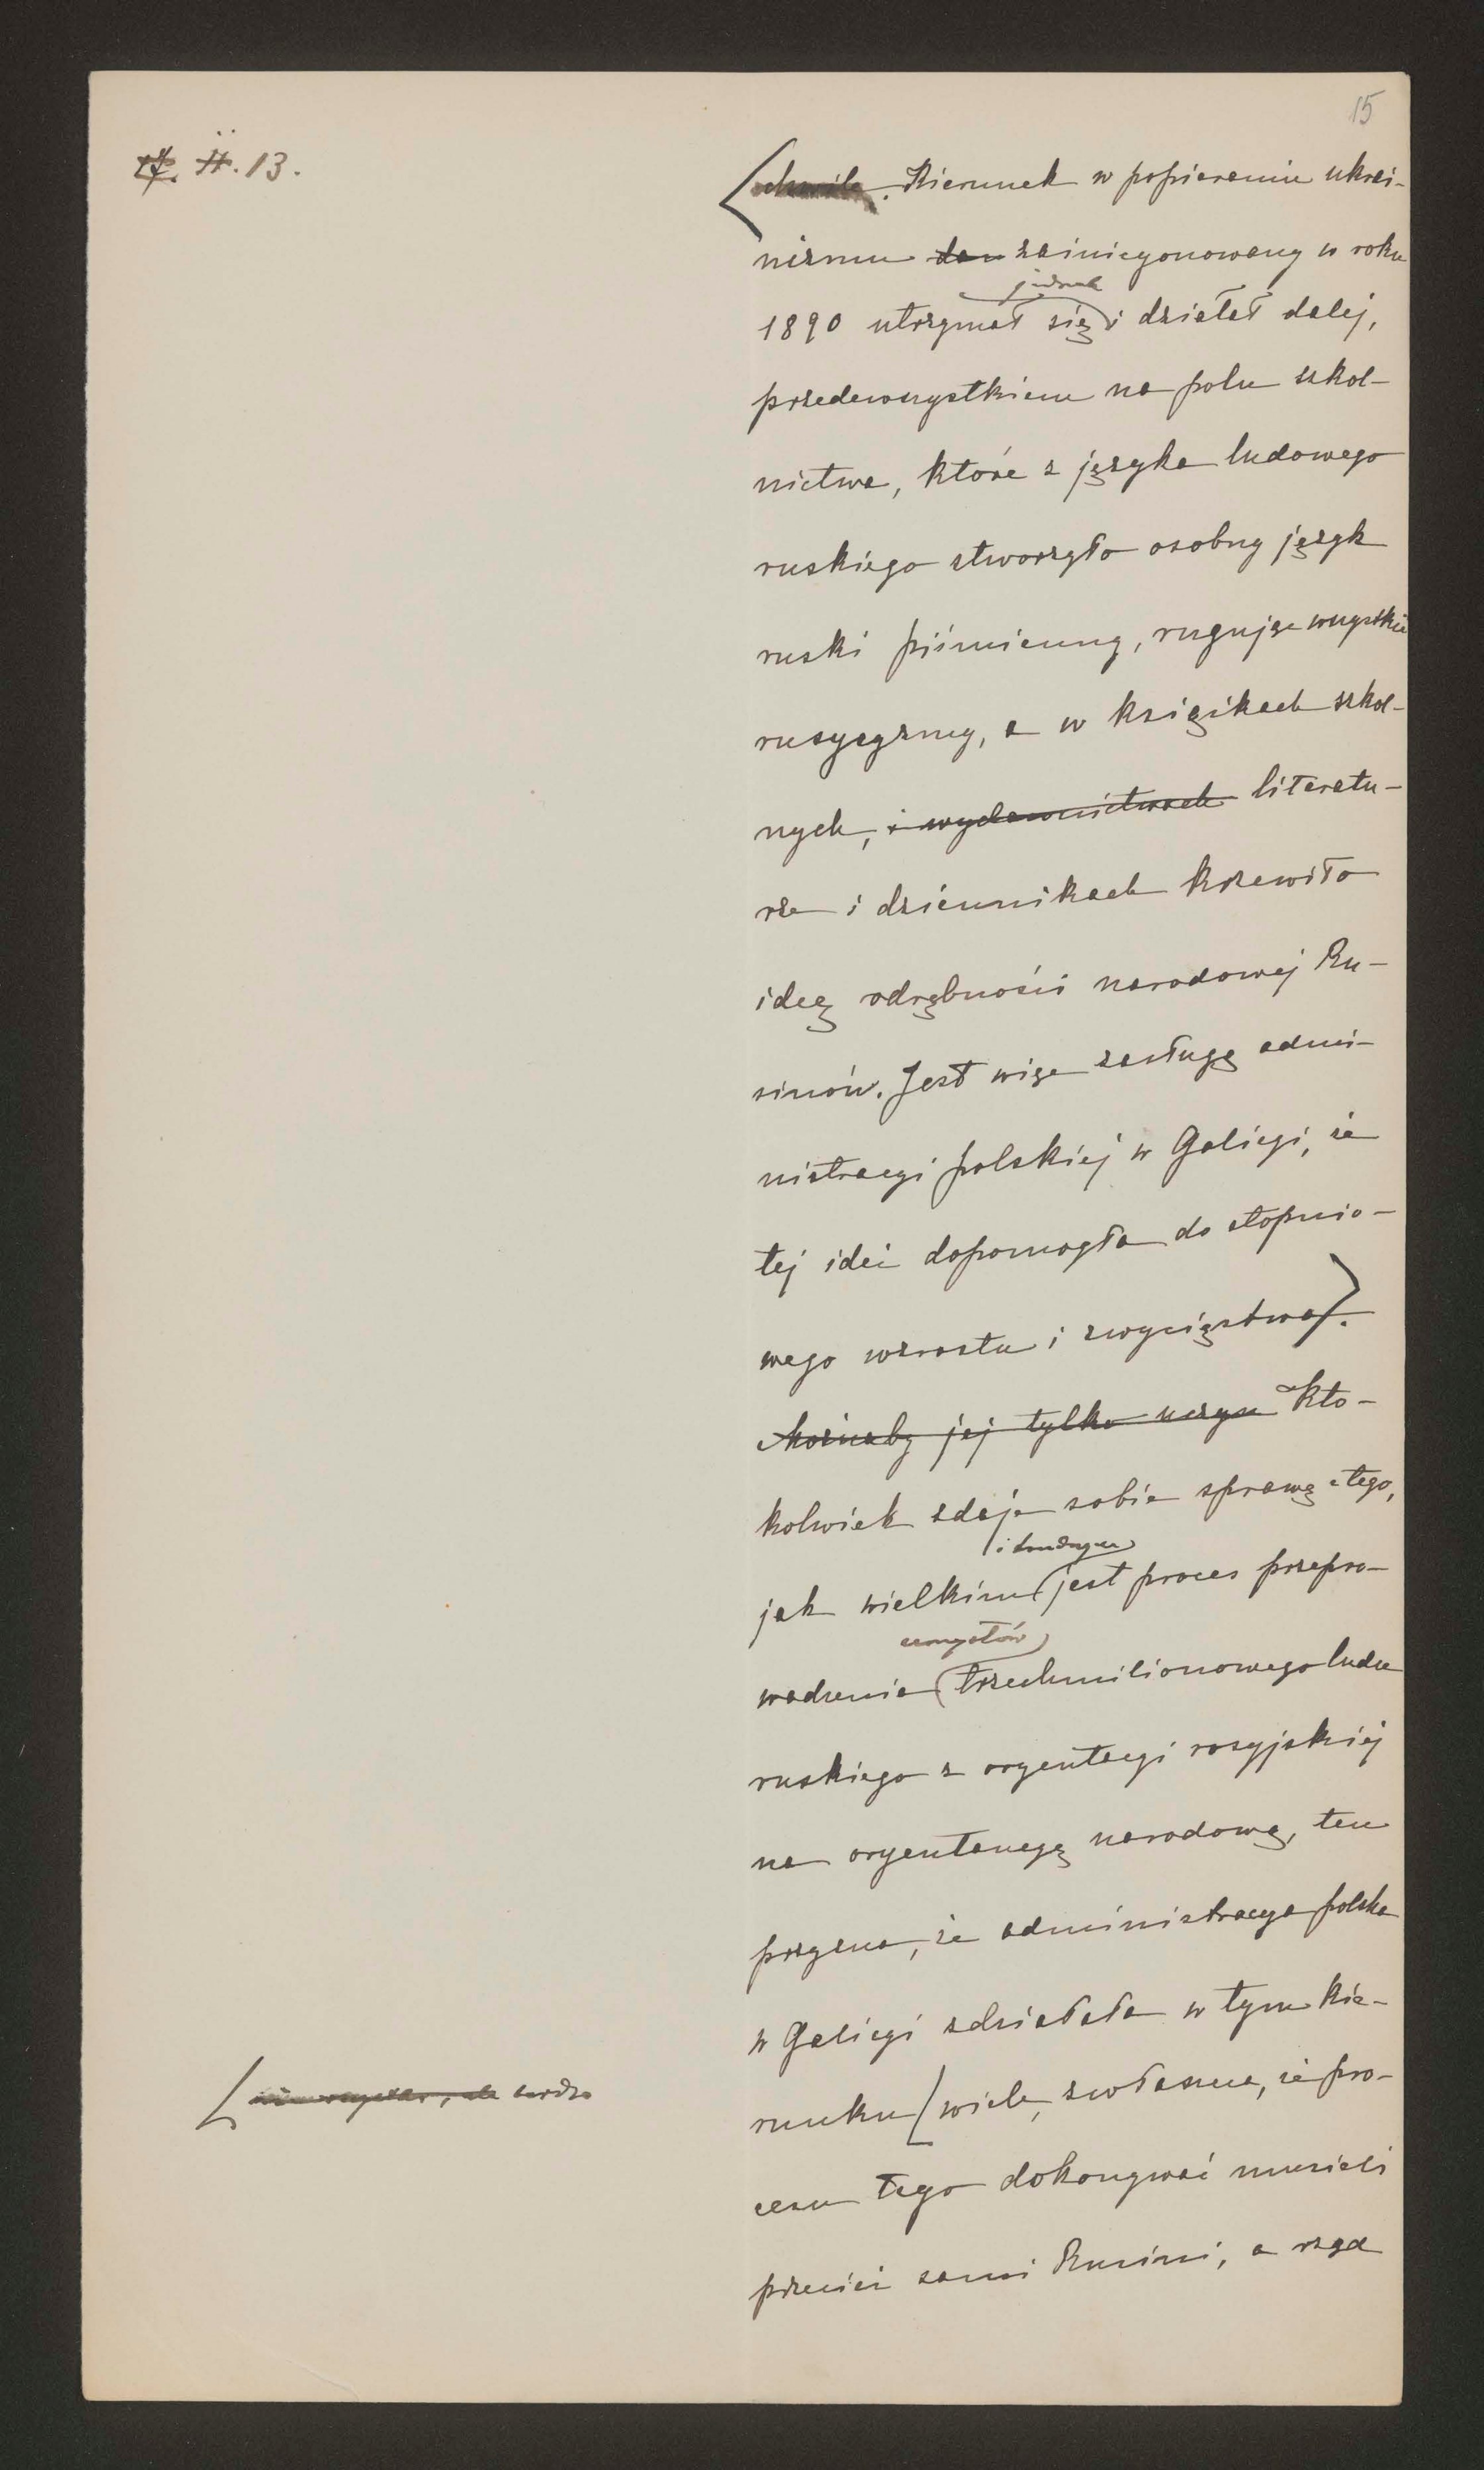 15
13.
chwila. Kierunek w popieraniu ukrai-
nizmu zainicyonowany w roku
jednak
1890 utrzymał się i działał dalej,
przedewszystkiem na polu szkol-
nictwa, które z języka ludowego
ruskiego stworzyło osobny język
ruski piśmienny, rugując wszystkie
rusycyzmy, a w książkach szkol-
nych, i wydawnictwach literatu-
rze i dziennikach krzewiło
ideę odrębności narodowej Ru-
sinów. Jest więc zasługą admi-
nistracyi polskiej w Galicyi, że
tej idei dopomogła do stopnio-
wego wzrostu i zwycięstwa.
Możnaby jej tylko Kto-
kolwiek zdaje sobie sprawę z tego,
i trudnym
jak wielkim jest proces przepro-
umysłów
wadzenia trzechmilionowego ludu
ruskiego z oryentacyi rosyjskiej
na oryentacyę narodową, ten
przyzna, że administracya polska
w Galicyi zdziałała w tym kie-
runku wiele, zwłaszcza, że pro-
ale bardzo
cesu tego dokonywać musieli
przecież sami Rusini, a rząd